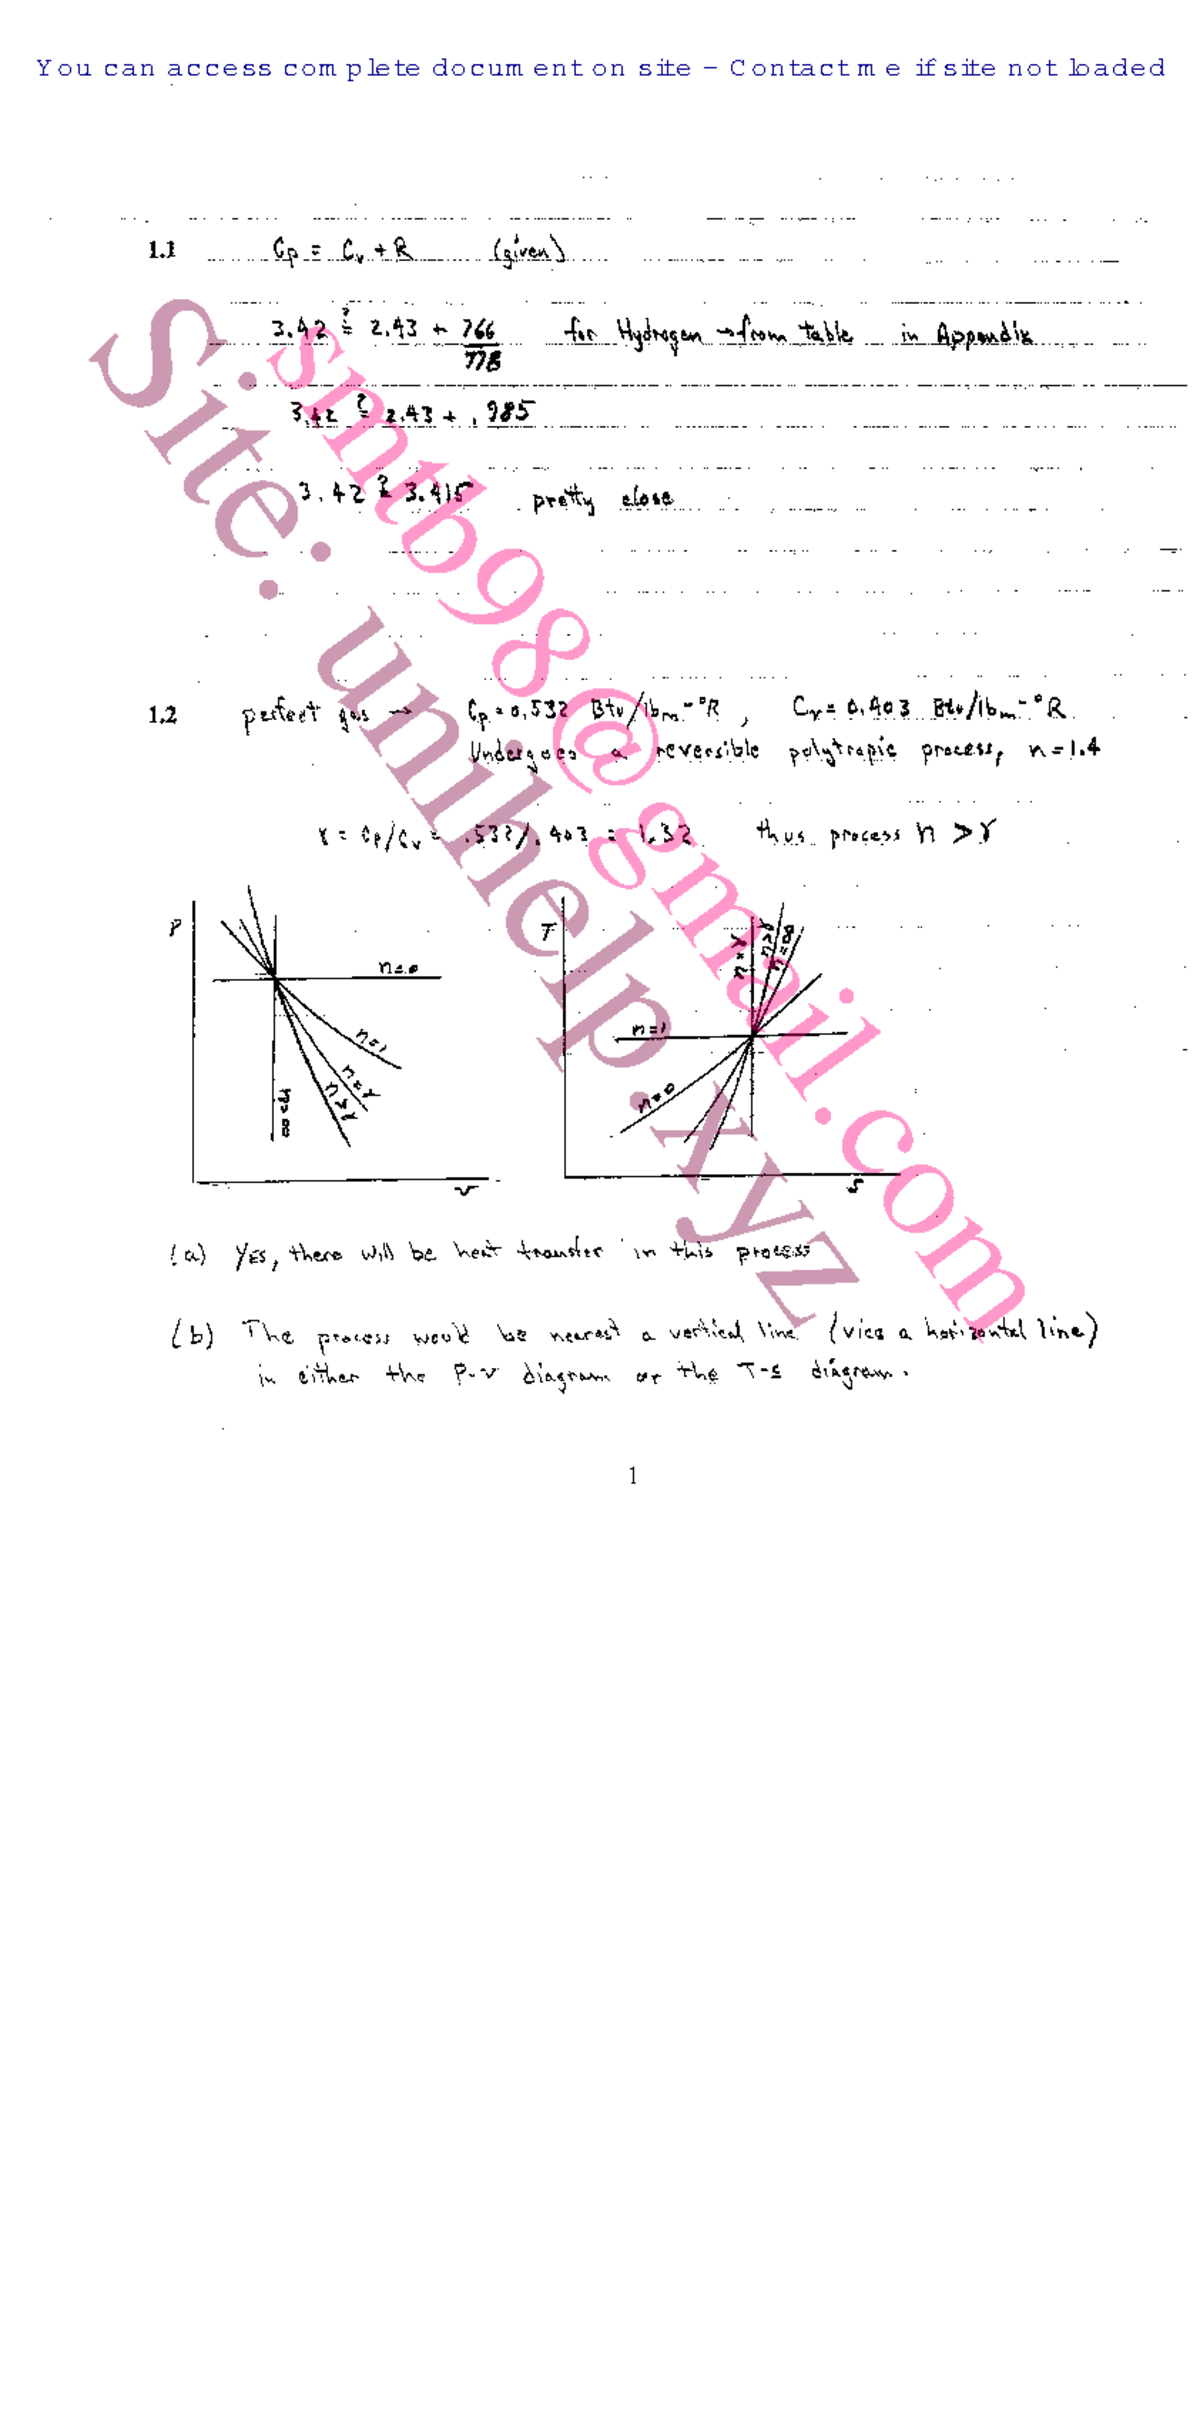 You can access complete document on site - Contact me if site not loaded
1.1 Cp = Cv + R (given)
3.42 ?= 2.43 + 766/778 for Hydrogen → from table in Appendix
3.42 ?= 2.43 + .985
3.42 ?= 3.415 pretty close
1.2 perfect gas → Cp = 0.532 Btu/lbm-°R , Cv = 0.403 Btu/lbm-°R
Undergoes a reversible polytropic process, n = 1.4
γ = Cp/Cv = .532/.403 = 1.32 thus process n > γ
P
n=0
n=1
n=γ
n>γ
n=∞
v
T
n=γ
n>γ
n=∞
n=1
n=0
s
(a) YES, there will be heat transfer in this process
(b) The process would be nearest a vertical line (vice a horizontal line)
in either the P-v diagram or the T-s diagram.
1
Site: unihelp.xyz
smtb98@gmail.com